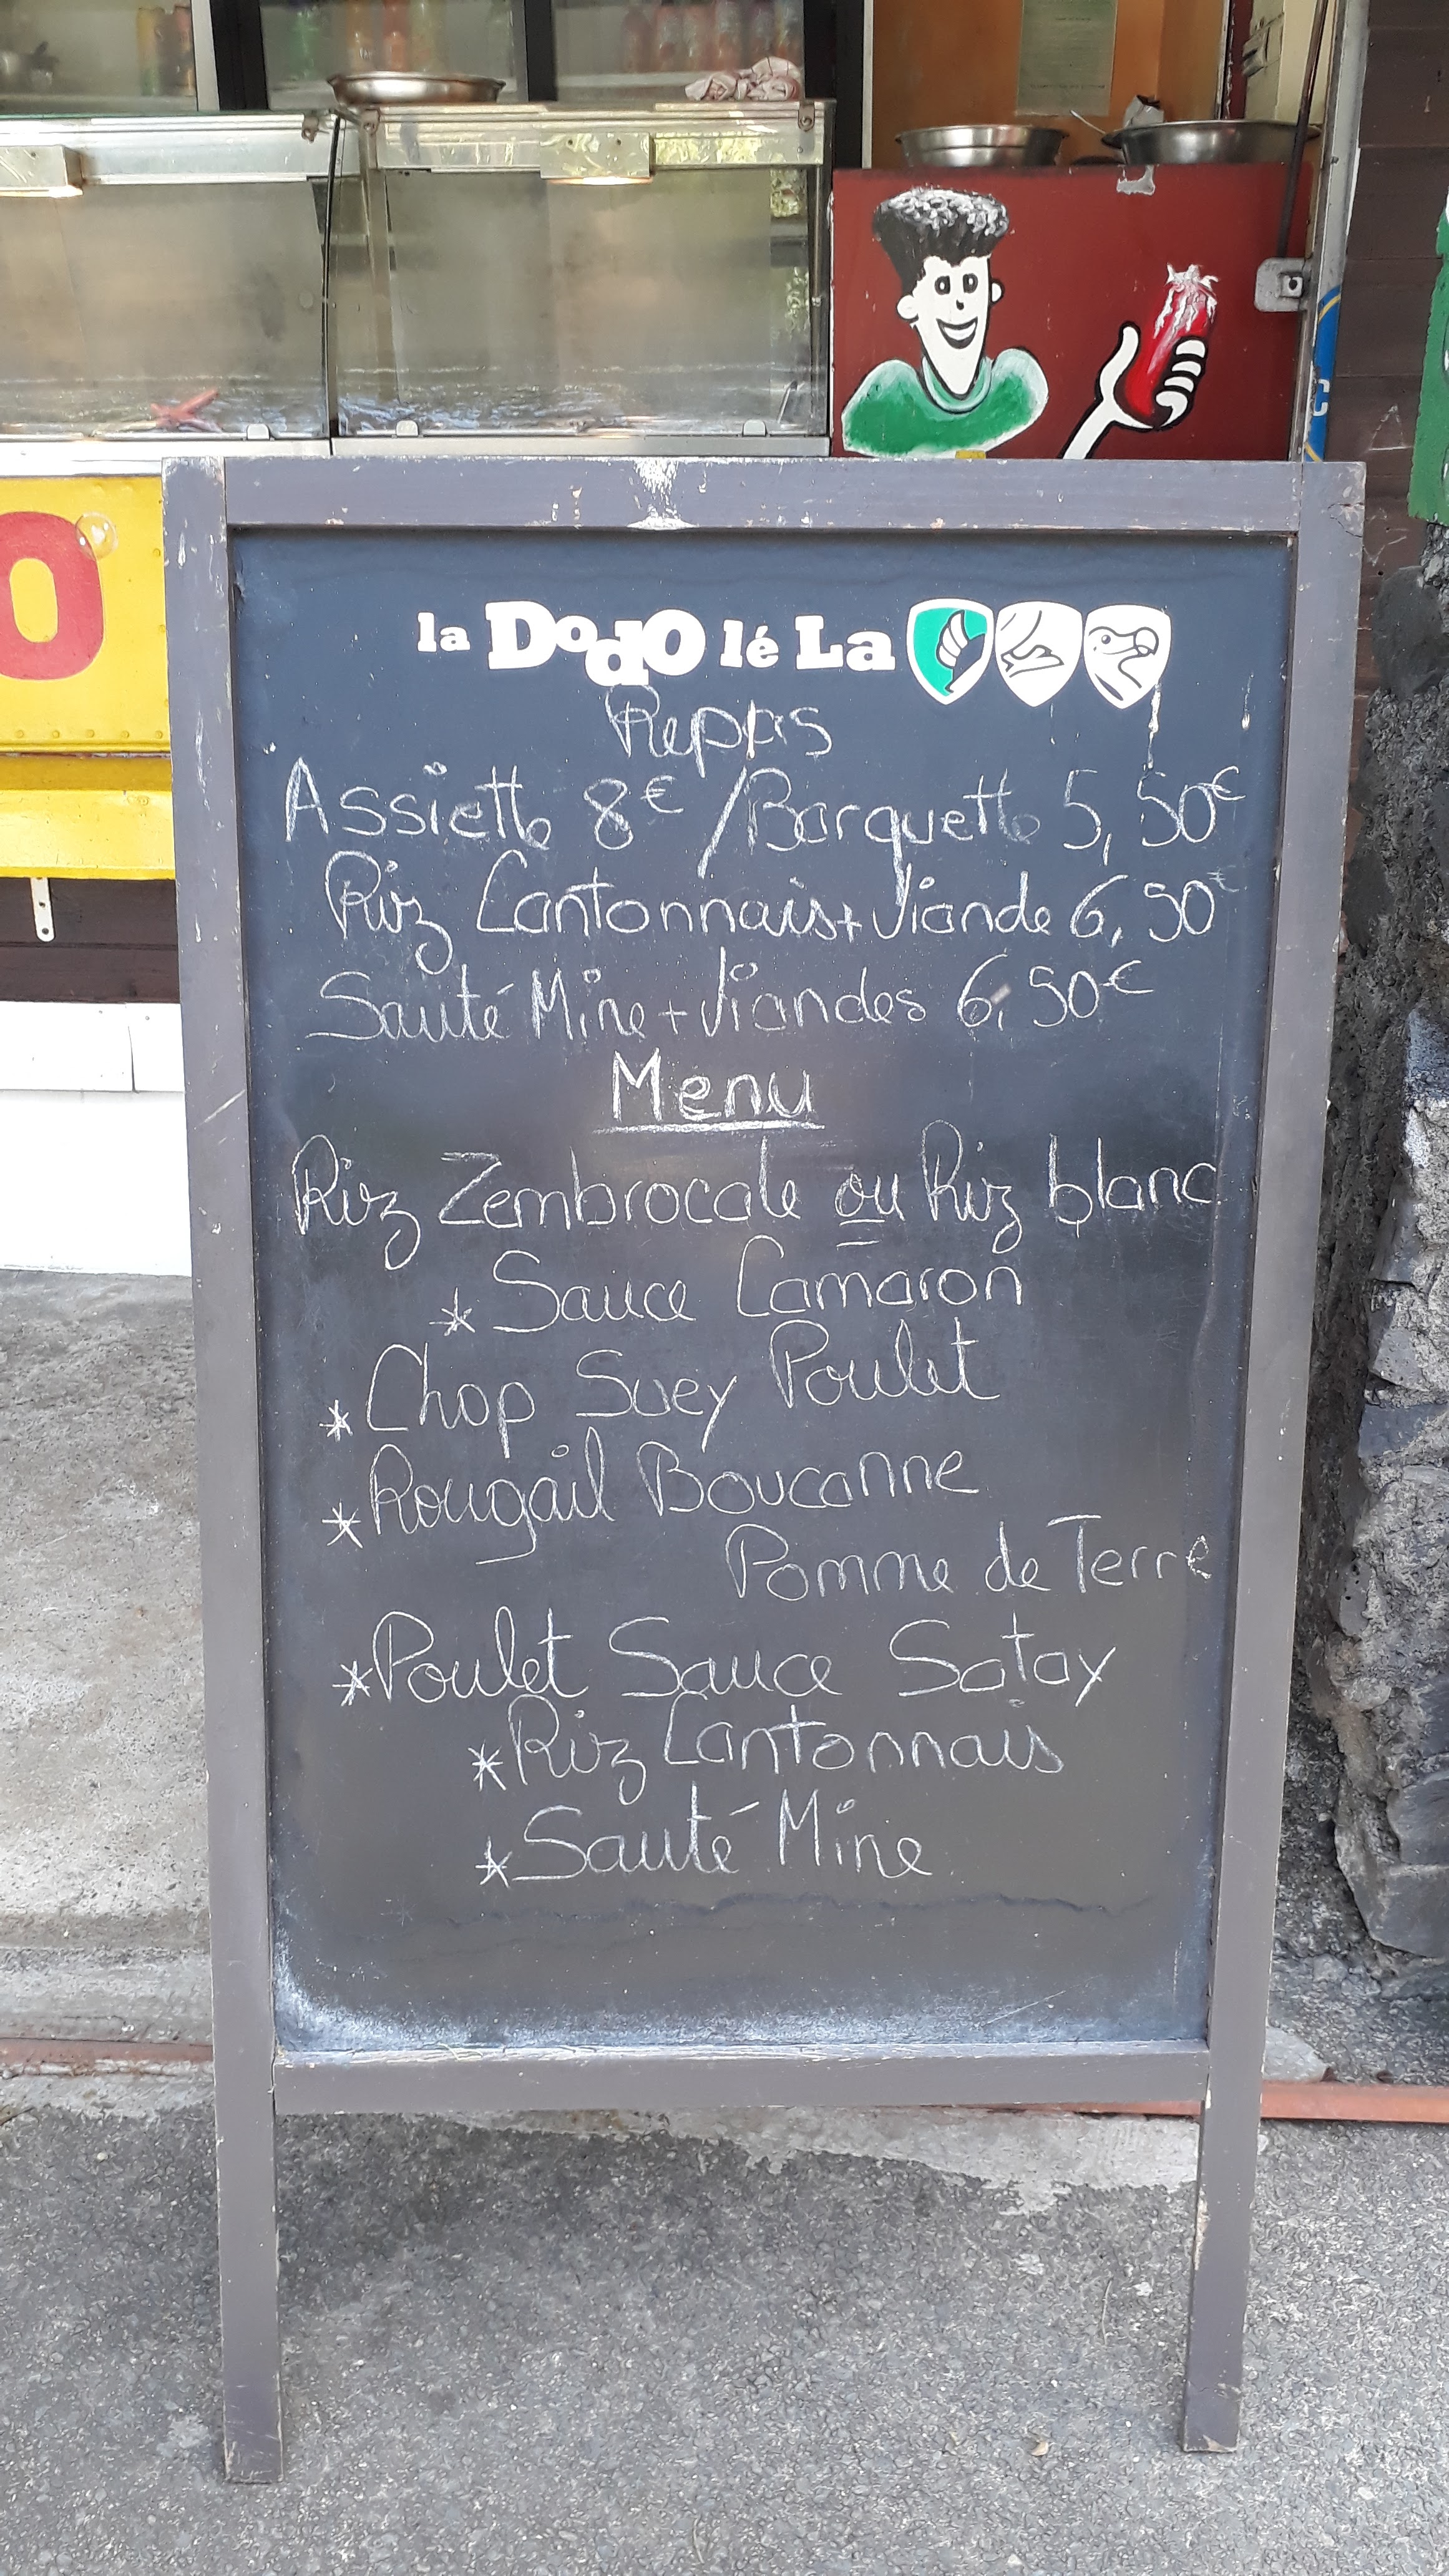 la DodO lé La
Reppas
Assiette 8€ / Barquette 5,50€
Riz Cantonnais + Viande 6,50€
Sauté Mine + Viandes 6,50€
Menu
Riz Zembrocale ou Riz blanc
* Sauce Camaron
* Chop Suey Poulet
* Rougail Boucanne
Pomme de Terre
* Poulet Sauce Satay
* Riz Cantonnais
* Sauté Mine